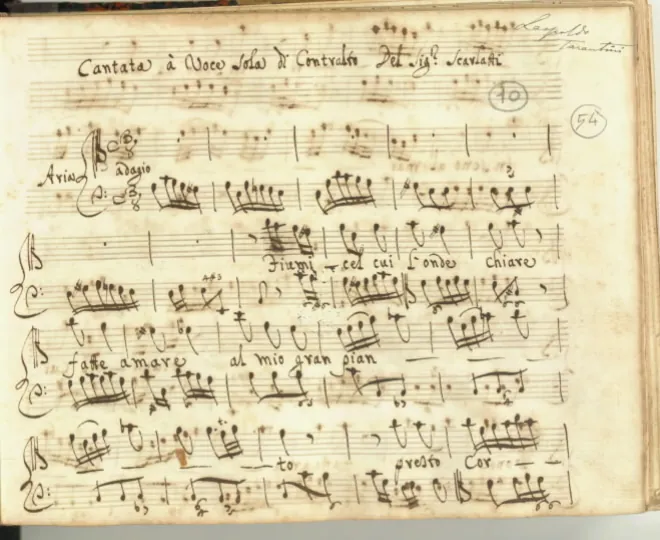 Leopoldo
Tarantini
Cantata à Voce Sola di Contralto Del Sig.r Scarlatti
10
54
Aria
adagio
Fiumi - cel cui l'onde chiare
fatte amare al mio gran pian
to presto Cor